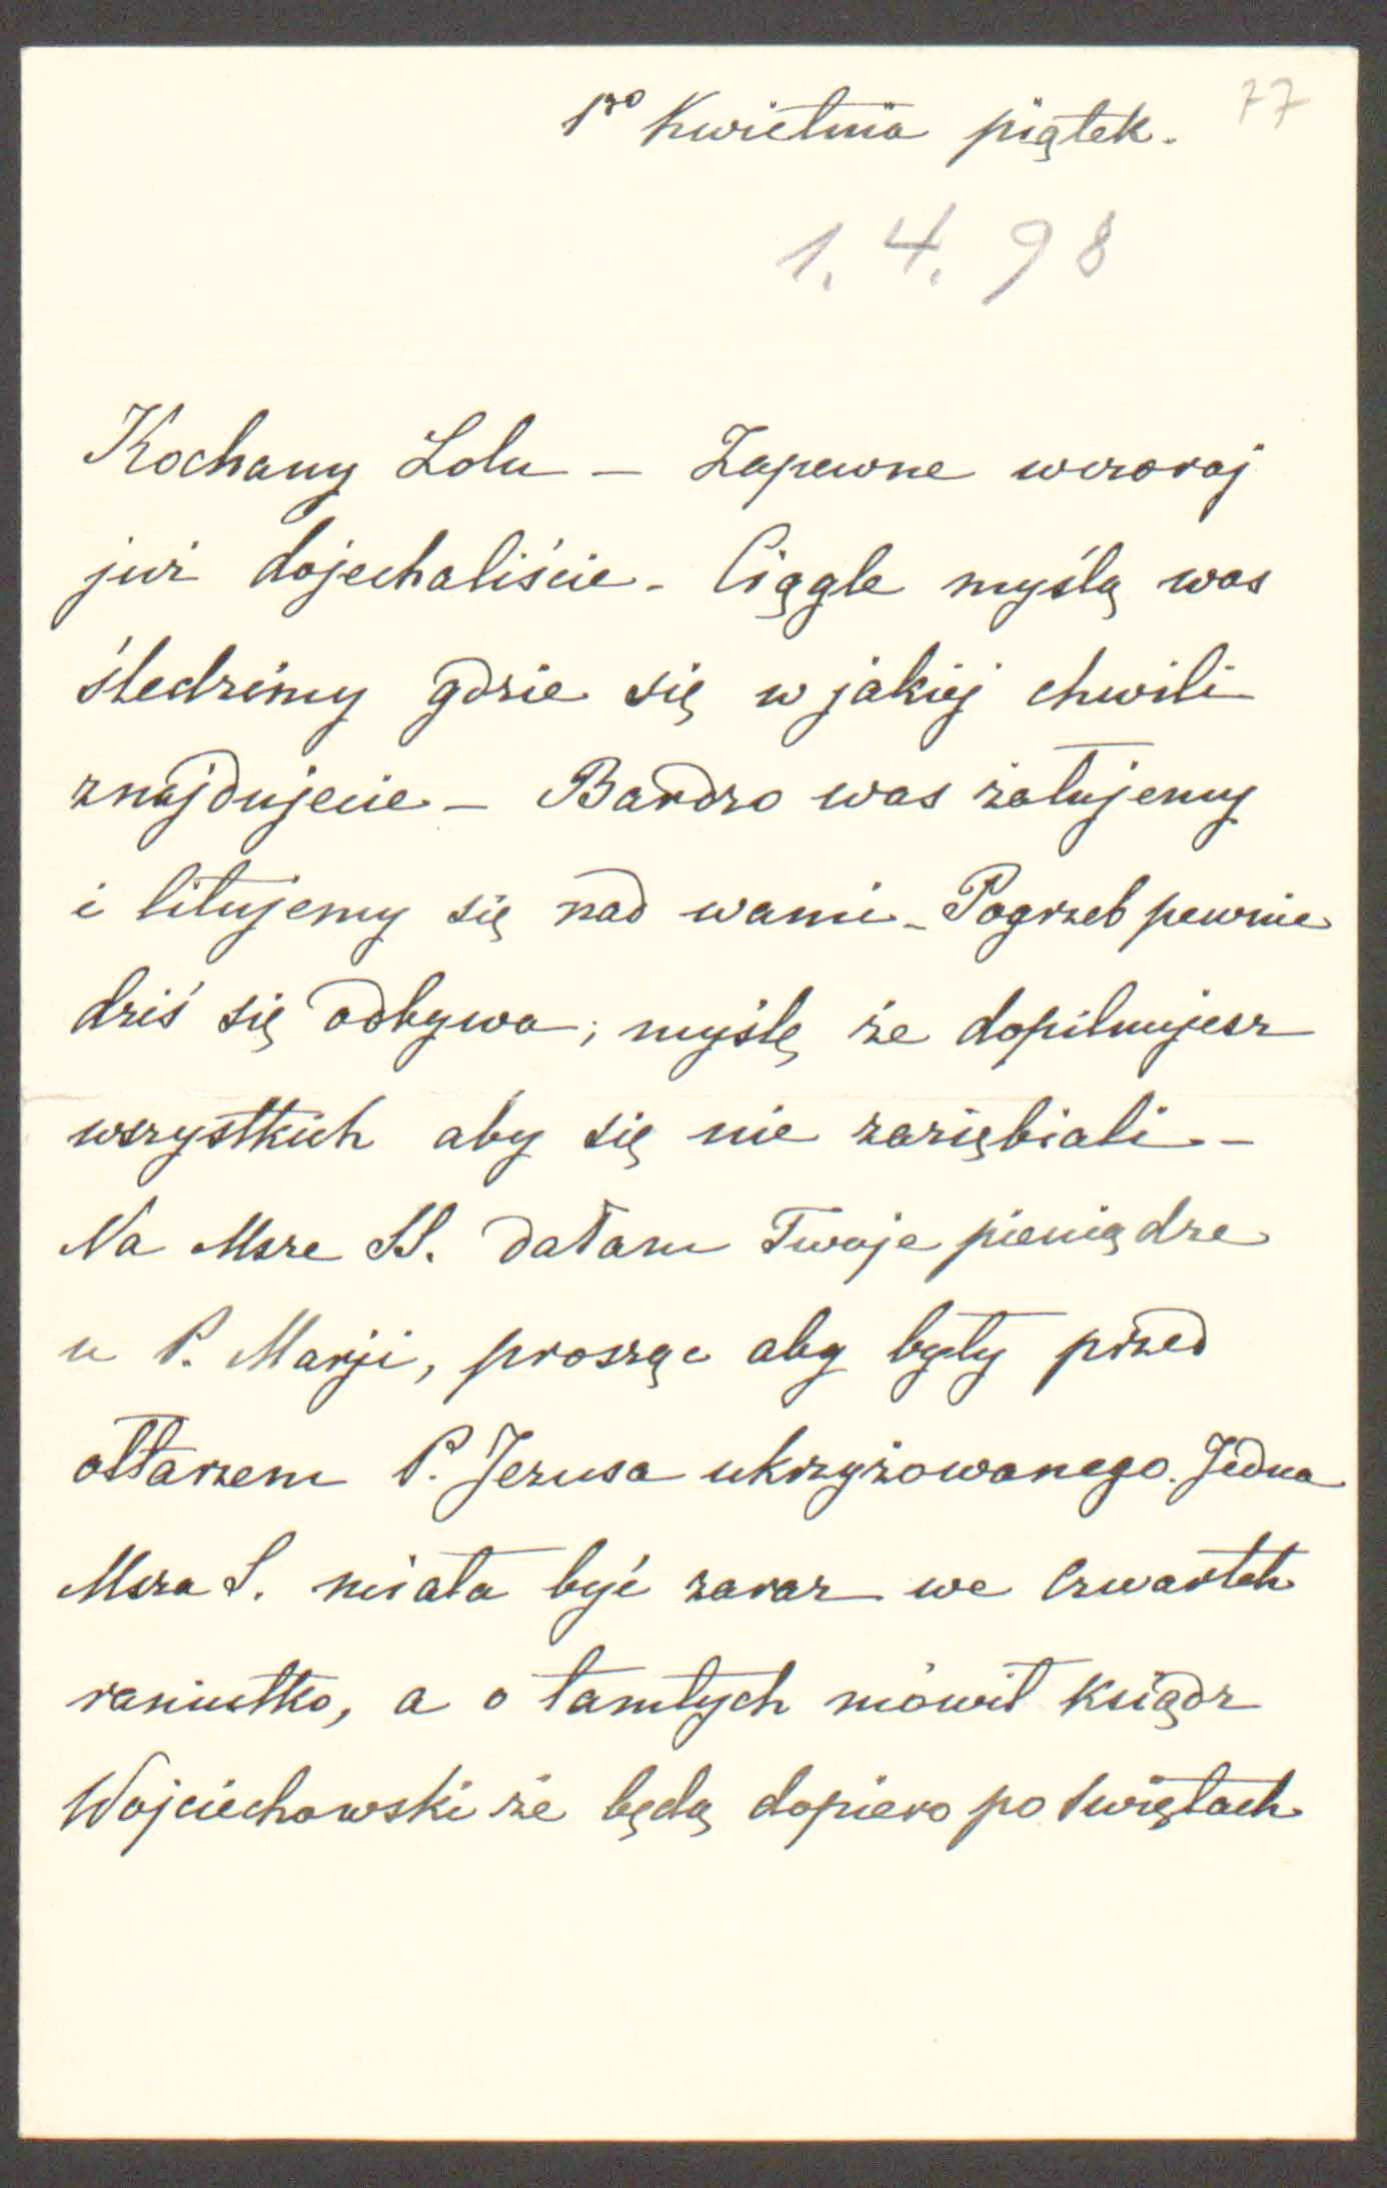 77
1go Kwietnia piątek.
1. 4. 98
Kochany Lolu – Zapewne wczoraj
już dojechaliście – Ciągle myślą was
śledzimy gdzie się w jakiej chwili
znajdujecie – Bardzo was żałujemy
i litujemy się nad wami – Pogrzeb pewnie
dziś się odbywa; myślę że dopilnujesz
wszystkich aby się nie zaziębiali –
Na Msze SS. dałam Twoje pieniądze
u P. Marji, prosząc aby były przed
ołtarzem P. Jezusa ukrzyżowanego. Jedna
Msza S. miała być zaraz we Czwartek
raniutko, a o tamtych mówił ksiądz
Wojciechowski że będą dopiero po świętach